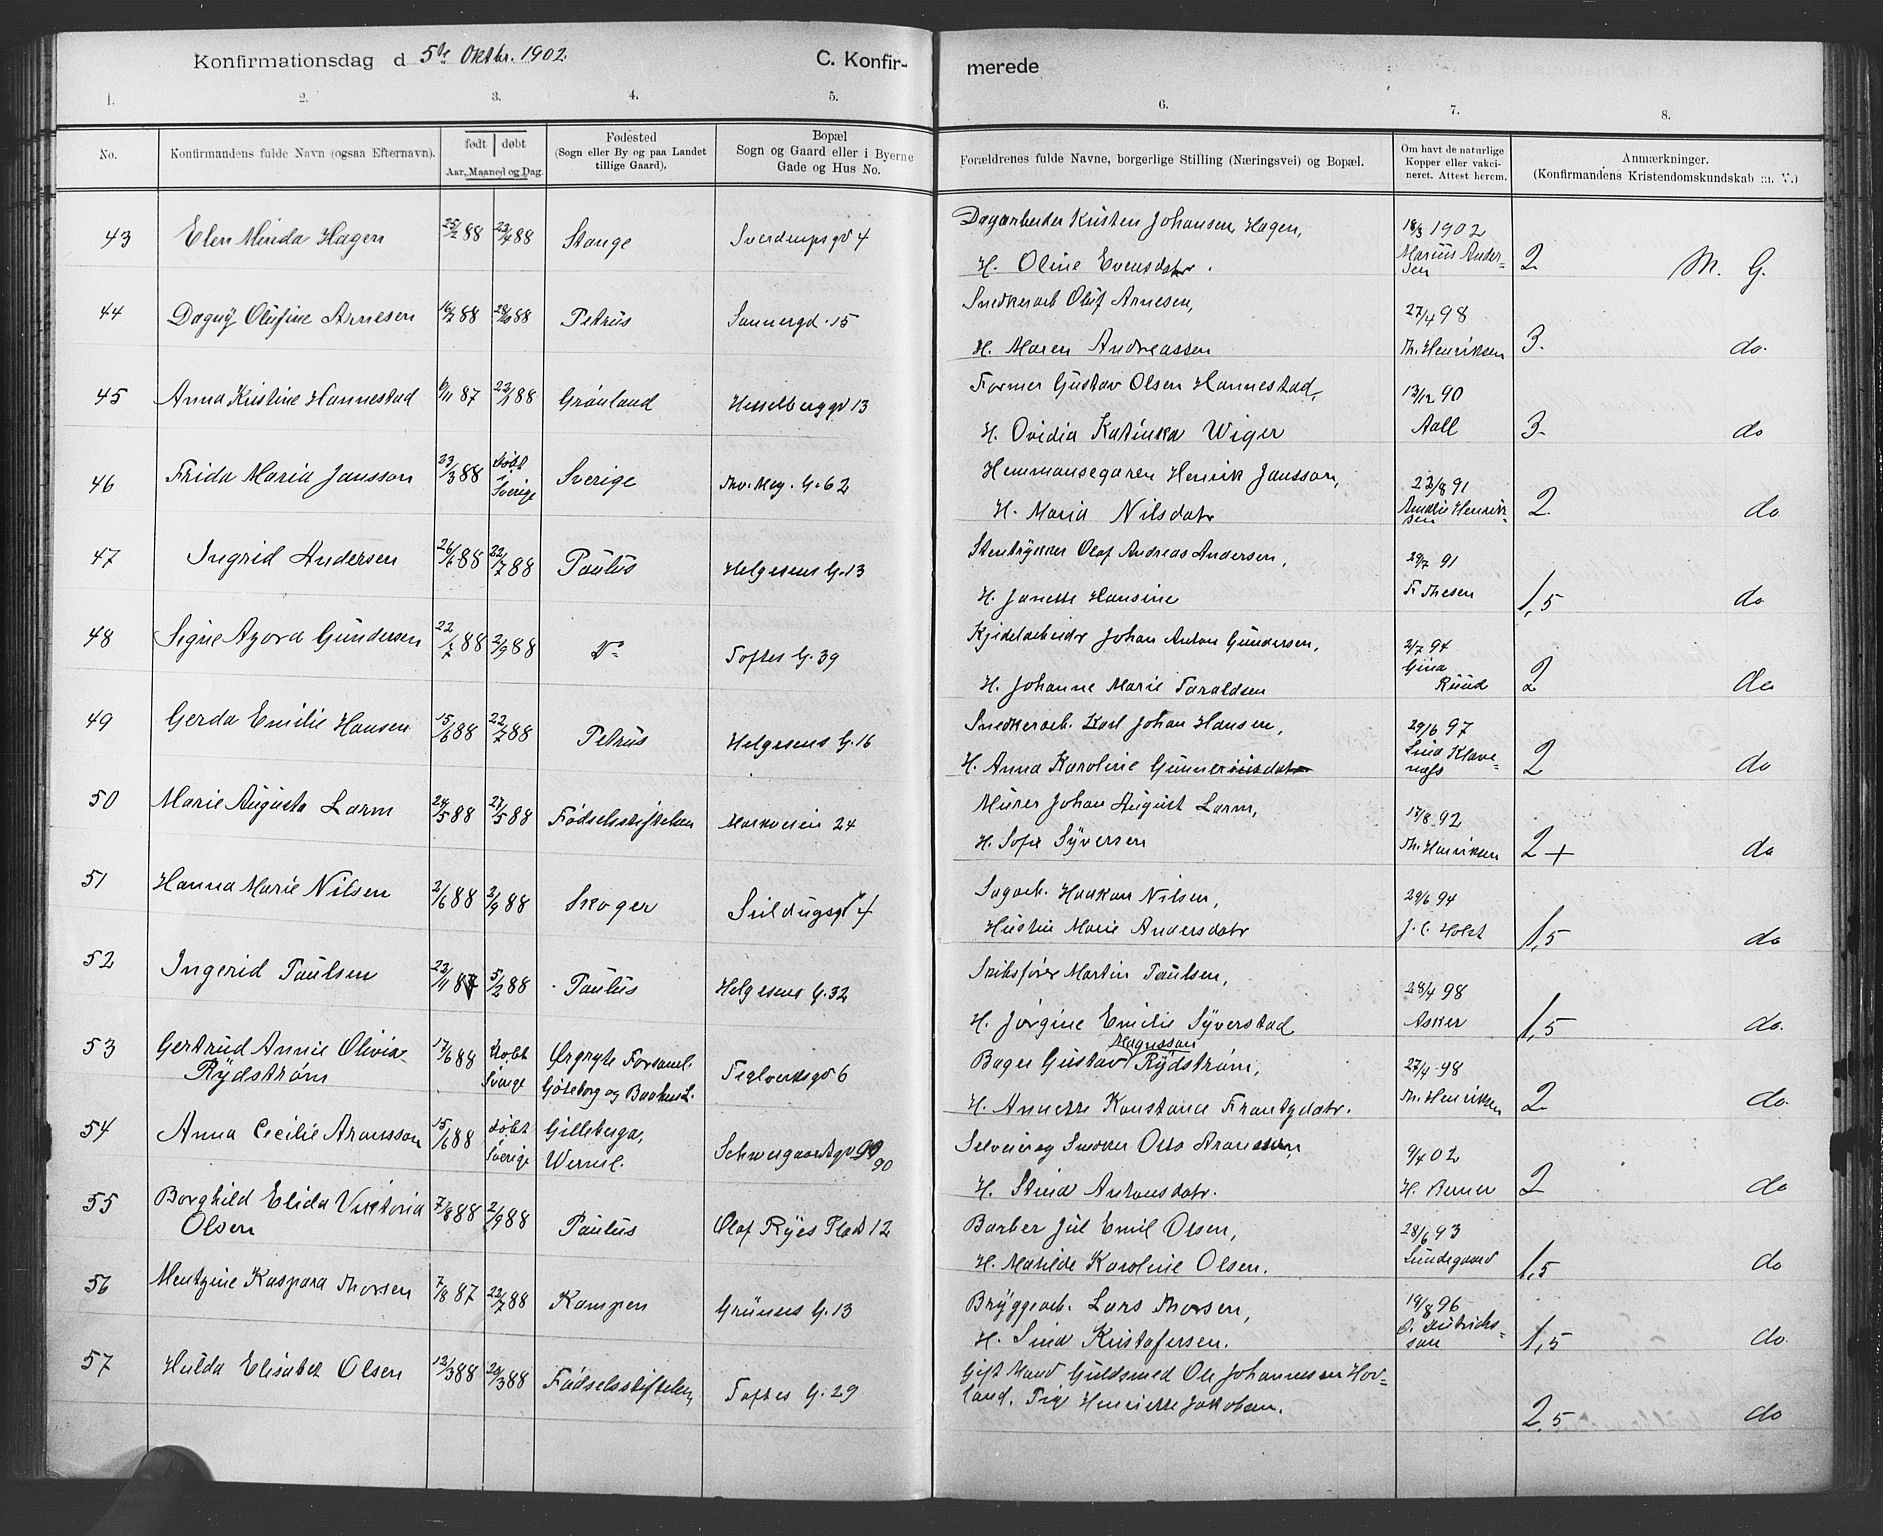 Konfirmationsdag d 5te Oktbr. 1902. C. Konfir-
merede
1. 2. 3. 4. 5. 6. 7. 8.
No.
Konfirmandens fulde Navn (ogsaa Efternavn).
født døbt
Aar, Maaned og Dag.
Fødested
(Sogn eller By og paa Landet
tillige Gaard).
Bopæl
Sogn og Gaard eller i Byerne
Gade og Hus No.
Forældrenes fulde Navne, borgerlige Stilling (Næringsvei) og Bopæl.
Om havt de naturlige
Kopper eller vakci-
neret. Attest herom.
Anmærkninger.
(Konfirmandens Kristendomskundskab m. V.)
43 Elen Minda Hagen 25/2 88 22/4 88 Stange Sverdrupsgd 4
Dagarbeider Kristen Johansen Hagen, 18/3 1902
H. Oline Evensdatr. Marius Ander-
sen 2 M. G.
44 Dagny Olufine Arnesen 88 88 Petrus Sannergd. 15
Snedkerarb Oluf Arnesen, 27/4 98
H. Maren Andreassen Th. Henriksen 3. do.
45 Anna Kristine Hannestad 6/11 87 22/1 88 Grønland Hesselberggd 13
Former Gustav Olsen Hannestad, 13/12 90
H. Ovidia Katinka Wiger Aall 3 do
46 Frida Maria Jansson 23/3 88 døbt i Sverige Sverige Thv. Mey. G. 62
Hemmansegaren Henrik Jansson, 23/8 91
H. Maria Nilsdatr Amalie Henrik-
sen 2. do
47 Ingrid Andersen 26/1 88 22/7 88 Paulus Helgesens G. 13
Stentrykker Olaf Andreas Andersen, 29/7 91
H. Janette Hansine Fr Thesen 1,5 do
48 Signe Agora Gundersen 22/7 88 2/9 88 Do Toftes G. 39
Kjedelarbeidr Johan Anton Gundersen, 2/7 94
Gina
H. Johanne Marie Taraldsen Ruud 2 do
49 Gerda Emilie Hansen 15/6 88 22/7 88 Petrus Helgesens G. 16
Snedkerarb. Karl Johan Hansen, 29/6 97
H. Anna Karoline Gunneriusdatr Lina Klave-
næss 2 do
50 Marie Augusta Larm 24/5 88 27/5 88 Fødselsstiftelsen Markveien 24
Murer Johan August Larm, 17/8 92
H. Sofie Syversen Th. Henriksen 2+ do
51 Hanna Marie Nilsen 2/6 88 2/9 88 Skoger Seildugsgd 4
Sagarb. Haakon Nilsen, 29/6 94
Hustru Marie Andersdatr J. C. Holst 1,5 do
52 Ingerid Paulsen 23/11 87 5/2 88 Paulus Helgesens G. 32
Skibsfører Martin Paulsen, 28/4 98
H. Jørgine Emilie Syverstad Asker 1,5 do.
53 Gertrud Annie Olivia
Rydstrøm 17/6 88 døbt Sverige Ørgryte Forsaml.
Göteborg og Bohus L. Teglverksgd 6
Magnusson
Bager Gustav Rydstrøm, 27/4 98
H. Annette Konstance Frantzdatr. Th. Henriksen 2 do.
54 Anna Cecilie Aronsson 15/6 88 døbt Sverige Gilleberga,
Werml. Schweigaardsgd 90
90
Selveier og Snekker Otto Aronsson, 9/4 02
H. Stina Antonsdatr. H. Berner 2 do
55 Borghild Elida Viktoria
Olsen 7/8 88 2/9 88 Paulus Olaf Ryes Plads 12
Barber Jul Emil Olsen, 28/6 93
H. Matilde Karoline Olsen. Lundegaard 1,5 do
56 Mentzine Kaspara Thorsen 7/8 87 22/7 88 Kampen Grüners G. 13
Bryggearb. Lars Thorsen, 19/8 96
H. Lina Kristofersen. O. Didrichs-
son 1,5 do.
57 Hulda Elisabet Olsen 12/3 88 29/3 88 Fødselsstiftelsen, Toftes G. 29
Gift Mand Guldsmed Ole Johannessen Hov-
land. Pige Henriette Jakobsen. 2,5 do